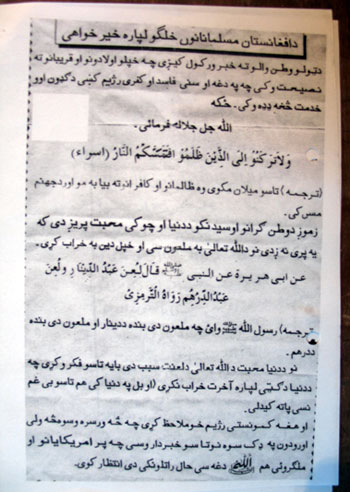 دافغانستان مسلمانانوں خلگو لپاره خیر خواهی
دټولو وطن والو ته خبر ورکول کیږی چه خپلو اولادونو او قریبانو ته
نصیحت وکی چه په دغه او سنی فاسد او کفری رژیم کښی دکډون اوو
خدمت څخه ډډه وکی. ځکه
الله جل جلاله فرمائی.
وَلَاتَرکَنُوا اِلَی الَّذِینَ ظَلَمُوا فَتَمَسَّکُمُ النَّارُ (اسراء)
(ترجمه) تاسو میلان مکوی وه ظالمانو او کافرانو ته بیا به مو اور دجهنم
مس کی.
زموږ د وطن گرانو اوسیدنکو ددنیا او چوکی محبت پریږ دی که
یه پری نه ږدی نو دالله تعالیٰ به ملعون سی او خپل دین به خراب کړی.
عن ابی هریرة عن النبی ﷺ قال لُعِنَ عَبدُ الدِّینَارِ ولُعِنَ
عَبدُ الدِّرهَمِ رَوَاهُ التِّرمِزِیُّ
ترجمه) رسول الله ﷺ وائ چه ملعون دی بنده ددینار او ملعون دی بنده
ددرهم.
نو ددنیا محبت د الله تعالیٰ دلعنت سبب دی بایه تاسو فکر وکړی چه
ددنیا دګټی لپاره آخرت خراب نکړی (او بل په دنیا کی هم تاسو بی غم
نسی پاته کیدلی.
او هغه کمونستی رژیم خو ملاحظه کړی چه څه ورسره وسوه هغه ولی
اورودون په ډک سوه نو تاسو خبردار وسی چه پر امریکایانو او
ملگروئی هم دغه سی حال راتلونکی دی انتظار کوی.